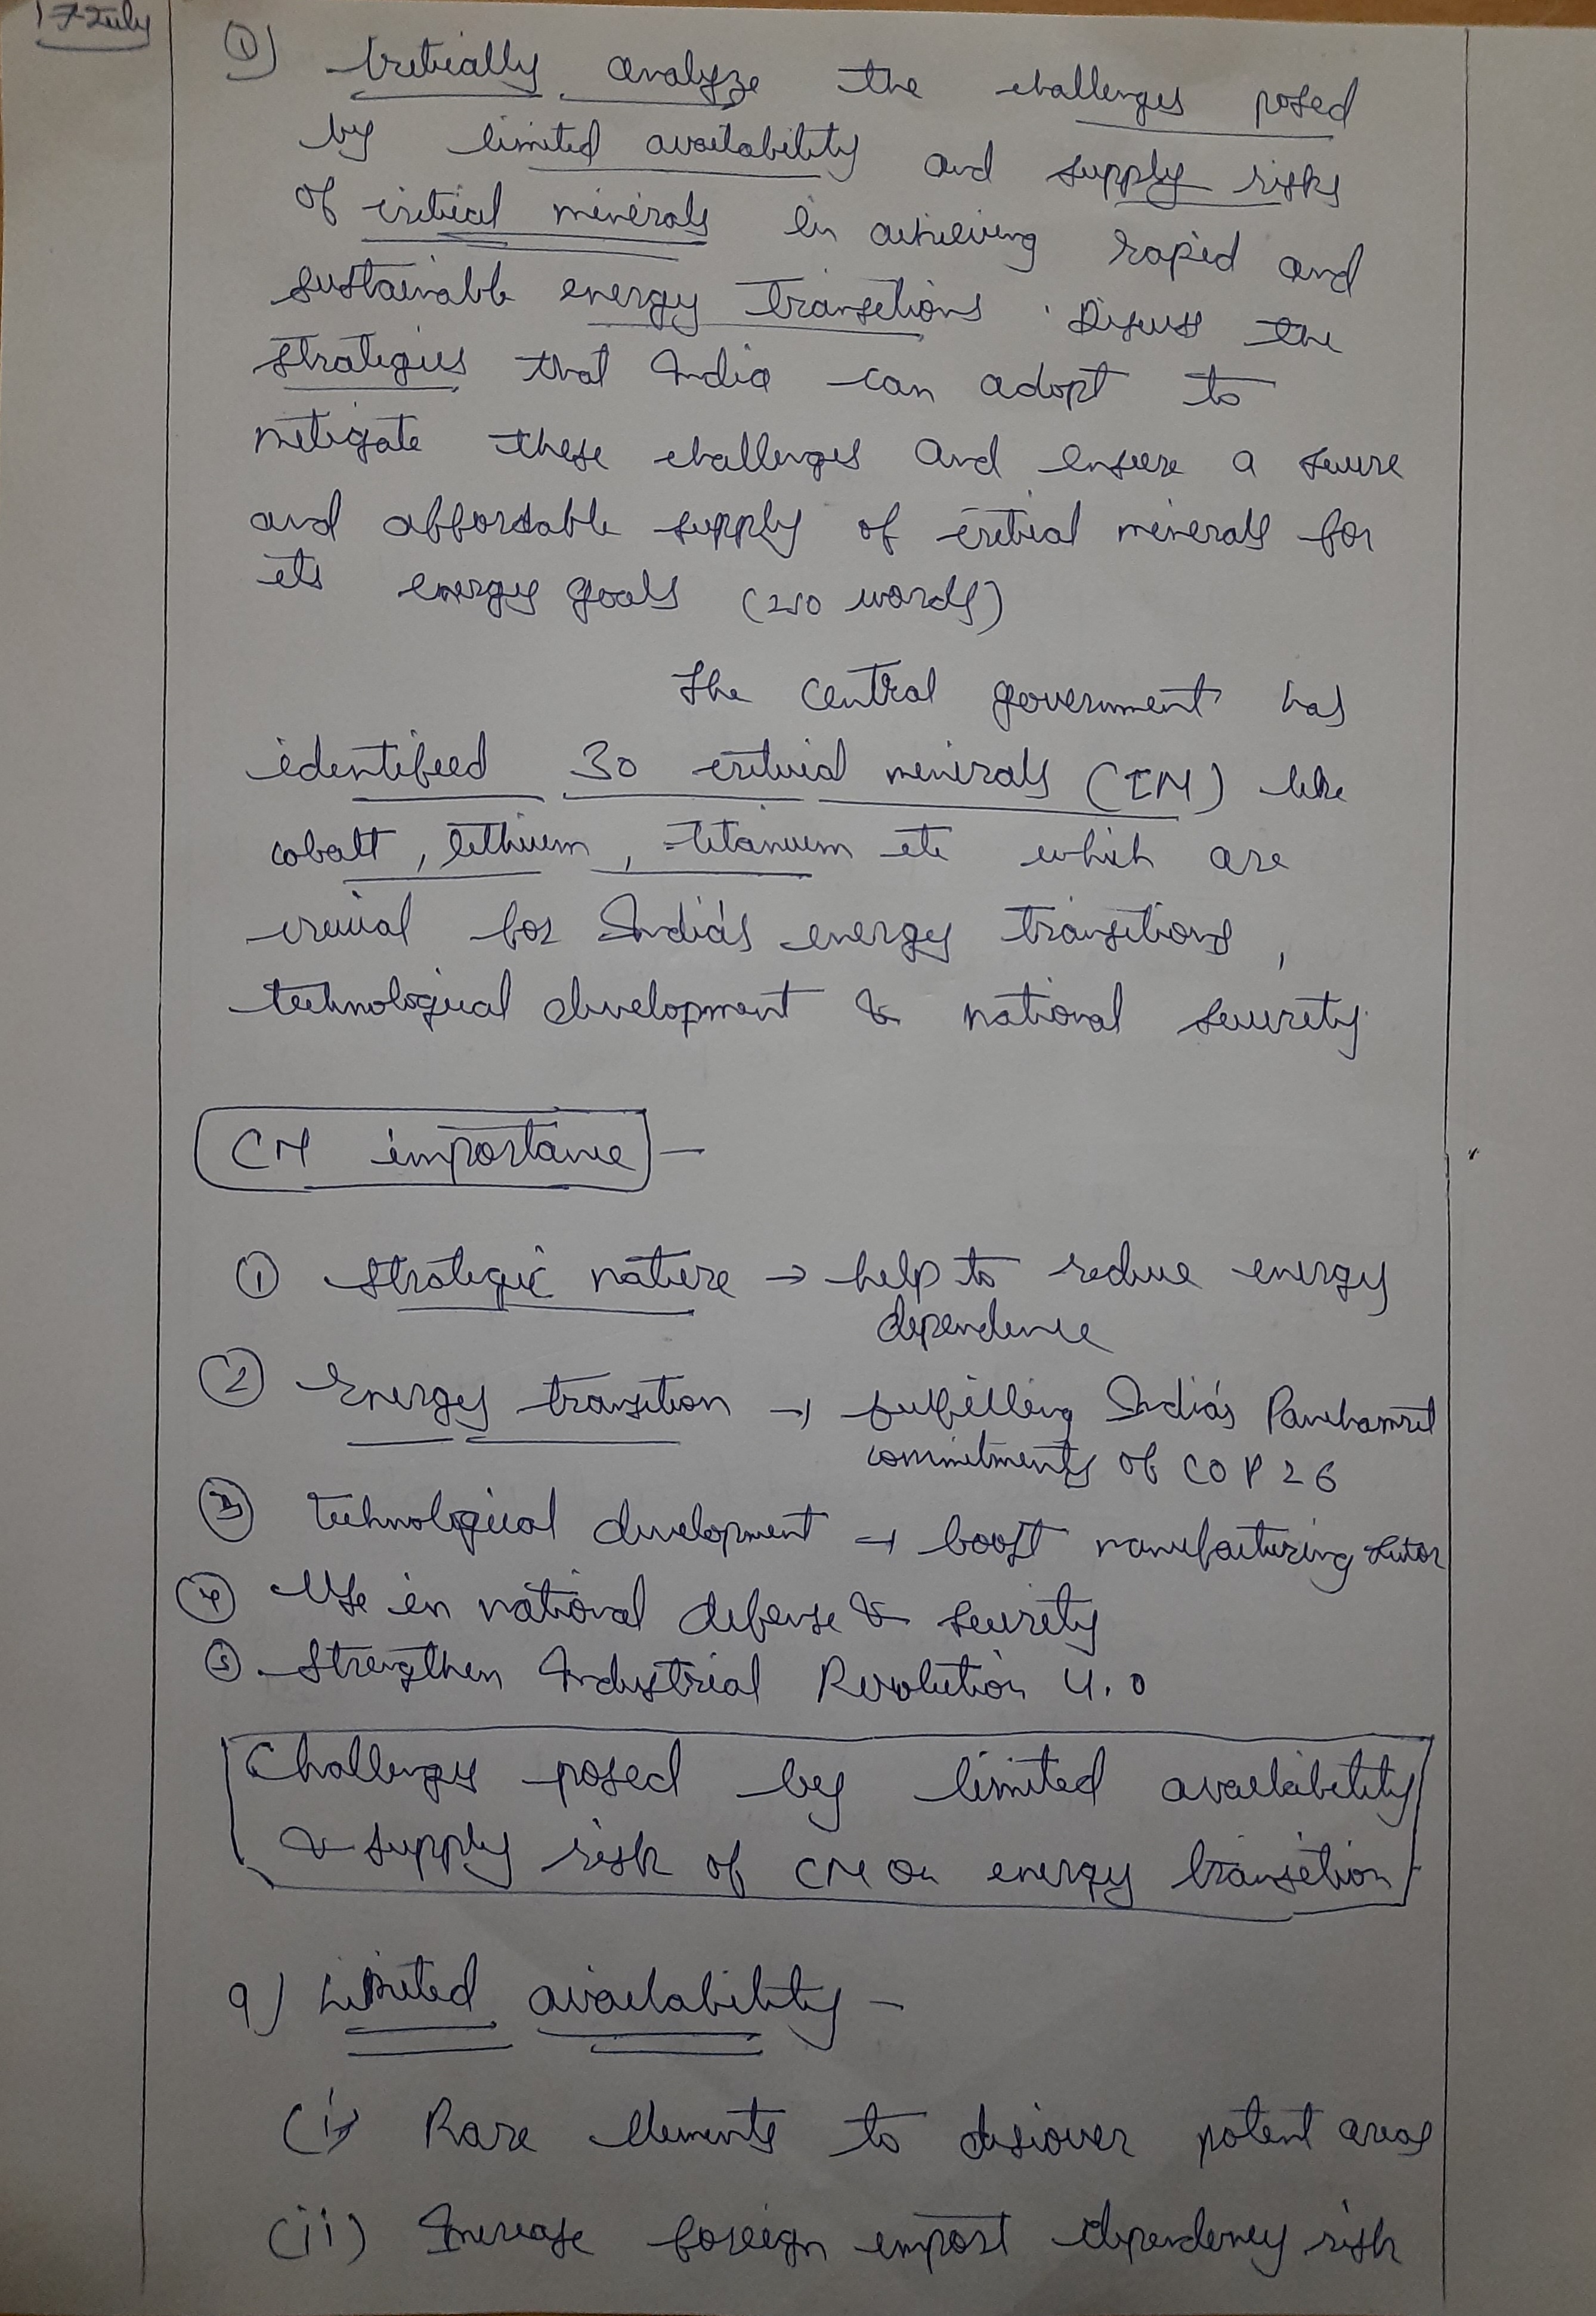 17 July
1) Critically analyze the challenges posed
by limited availability and supply risks
of critical minerals in achieving rapid and
sustainable energy transitions. Discuss the
strategies that India can adopt to
mitigate these challenges and ensure a secure
and affordable supply of critical minerals for
its energy goals (250 words)
The central government has
identified 30 critical minerals (CM) like
cobalt, lithium, titanium etc which are
crucial for India's energy transitions,
technological development & national security.
CM importance —
① Strategic nature → help to reduce energy
dependence
② Energy transition → fulfilling India's Panchamrit
commitments of COP 26
③ Technological development → boost manufacturing sector
④ Use in national defense & security
⑤ Strengthen Industrial Revolution 4.0
Challenges posed by limited availability
& supply risk of CM on energy transition
a) Limited availability —
(i) Rare elements to discover potent areas
(ii) Increase foreign import dependency risk